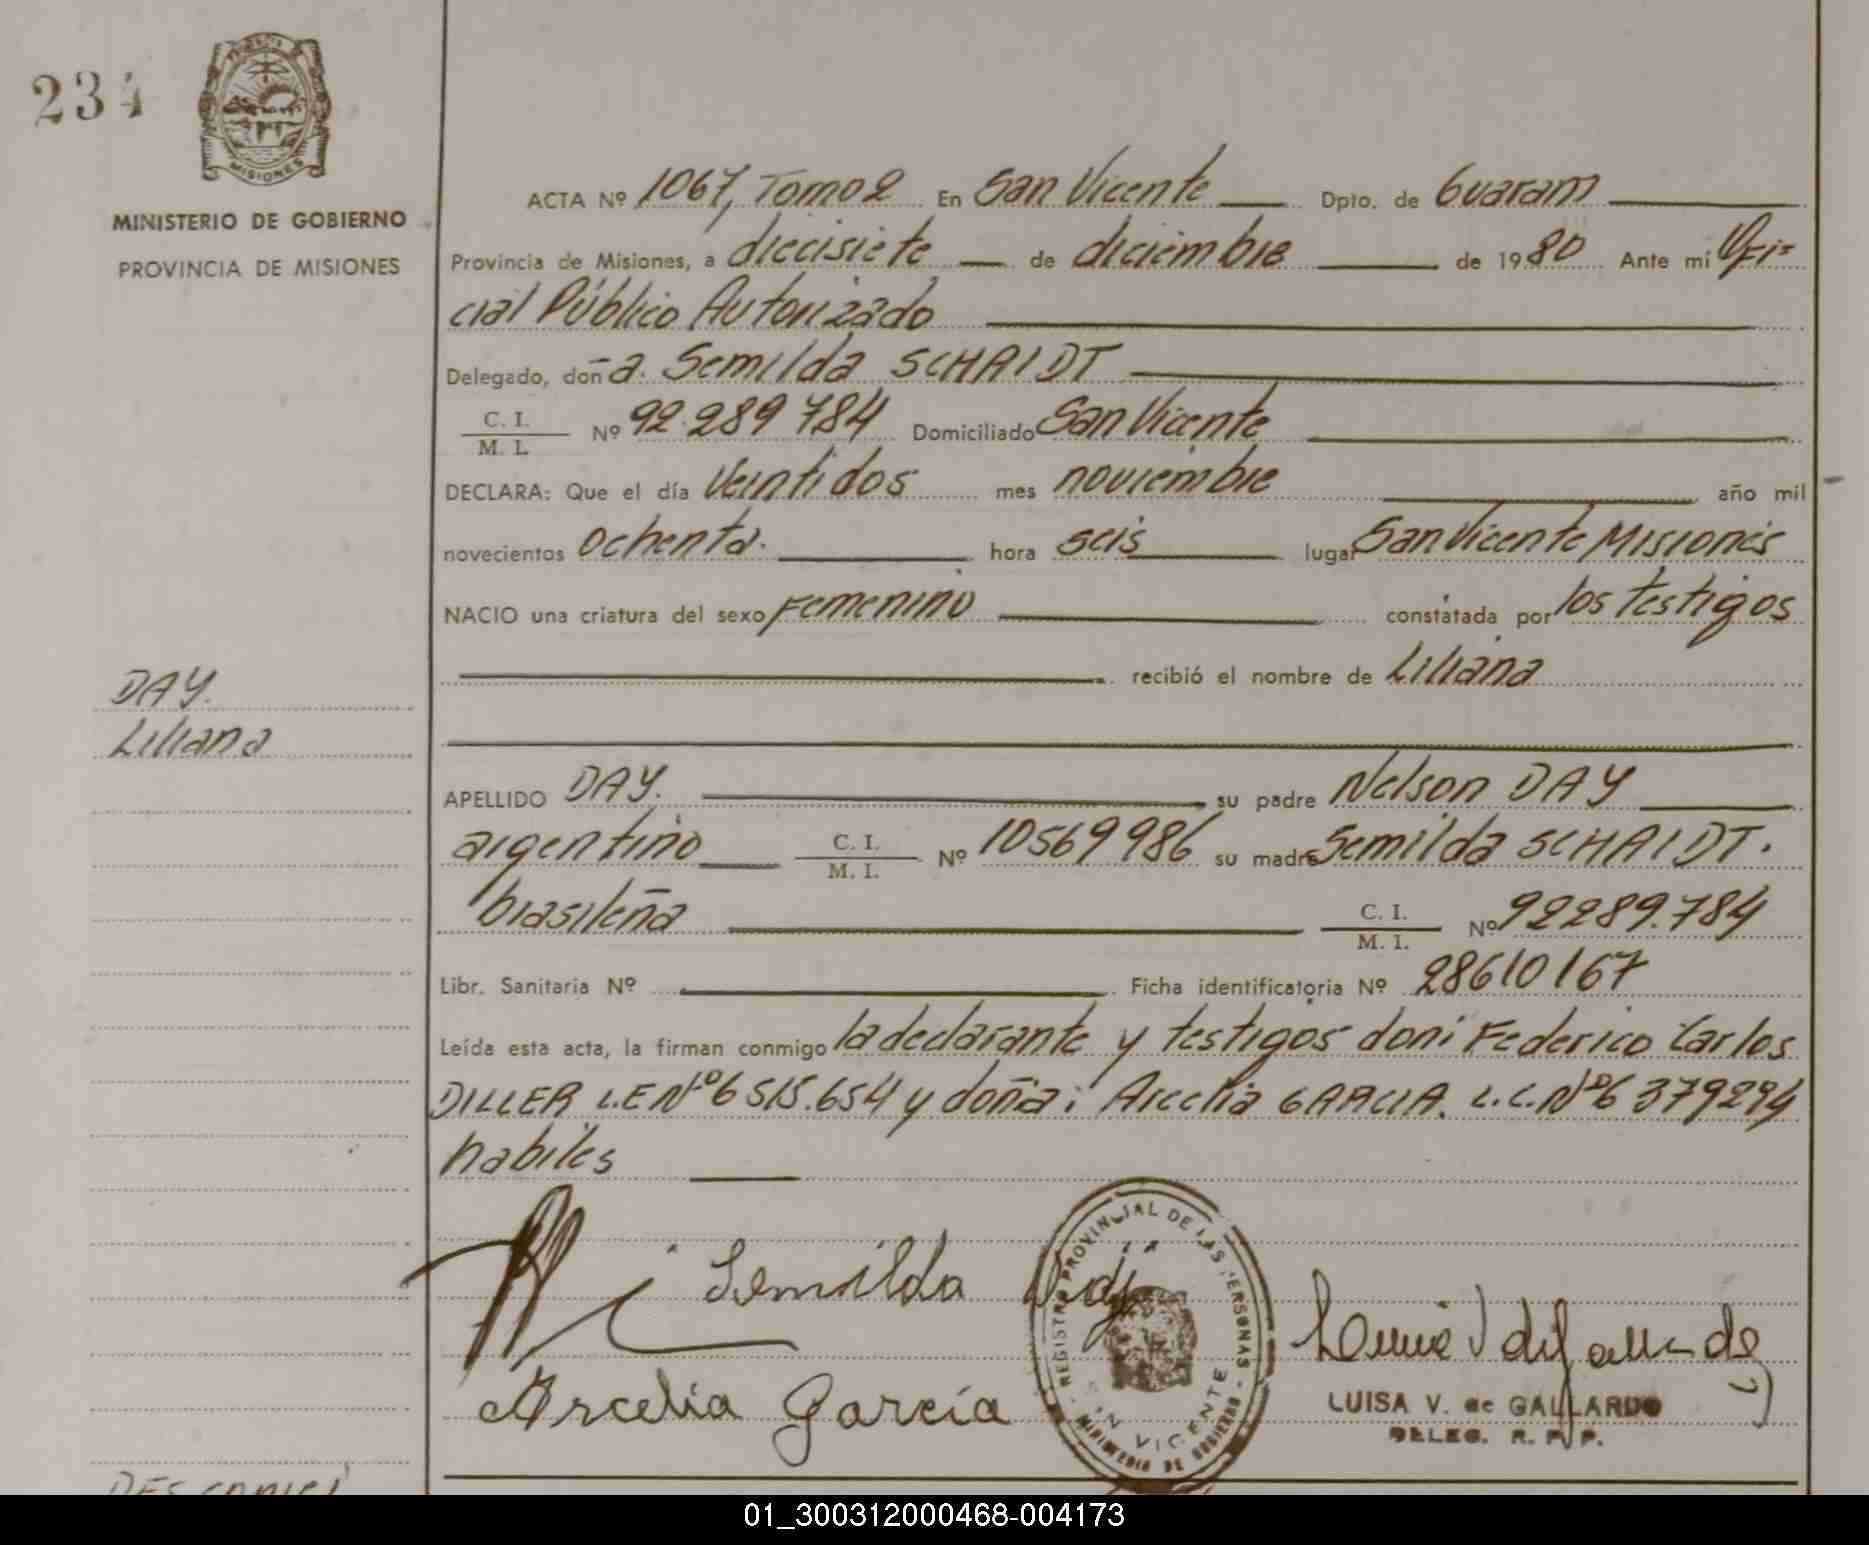 234
MISIONES
MINISTERIO DE GOBIERNO
PROVINCIA DE MISIONES
ACTA Nº 1067, Tomo 2 En San Vicente Dpto. de Guarani
Provincia de Misiones, a diecisiete de diciembre de 1980 Ante mí Ofi=
cial Público Autorizado
Delegado, doña. Semilda SCHAIDT
C. I. / M. I. Nº 92.289 784 Domiciliado San Vicente
DECLARA: Que el día Veintidos mes noviembre año mil
novecientos ochenta. hora seis lugar San Vicente Misiones
NACIO una criatura del sexo Femenino constatada por los testigos
recibió el nombre de Liliana
DAY.
Liliana
APELLIDO DAY. su padre Nelson DAY
argentino C. I. / M. I. Nº 10569986 su madre Semilda SCHAIDT.
brasileña C. I. / M. I. Nº 92289.784
Libr. Sanitaria Nº Ficha identificatoria Nº 28610167
Leída esta acta, la firman conmigo la declarante y testigos don: Federico Carlos
DILLER L.E Nº 6515.654 y doña: Arcelia GARCIA. L.C. Nº 6 379294
habiles
Semilda
Arcelia García
REGISTRO PROVINCIAL DE LAS PERSONAS
SAN VICENTE
MINISTERIO DE GOBIERNO
LUISA V. de GALLARDO
DELEG. R. P. P.
01_300312000468-004173